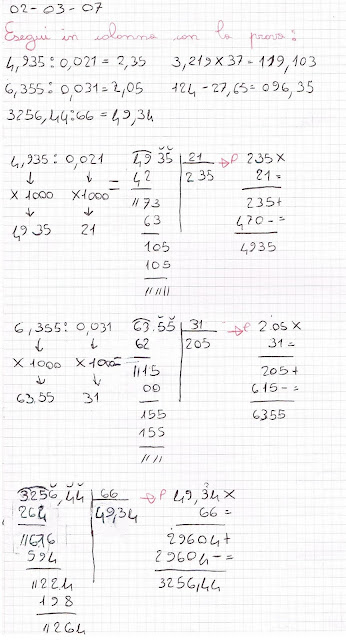 02-03-07
Esegui in colonna con la prova:
4,935:0,021=2,35 3,219x37=119,103
6,355:0,031=2,05 124-27,65=096,35
3256,44:66=49,34
4,935:0,021 4935 21 → P 235x
↓ ↓ 42 235 21=
x1000 x1000 = 1173 235+
↓ ↓ 63 470-=
4935 21 105 4935
105
6,355:0,031 6355 31 → P 2.05x
↓ ↓ 62 205 31=
x1000 x1000 = 1115 205+
↓ ↓ 00 615-=
6355 31 155 6355
155
3256,44 66 → P 49,34x
264 49,34 66=
29604+
594 29604-=
11224 3256,44
198
11264